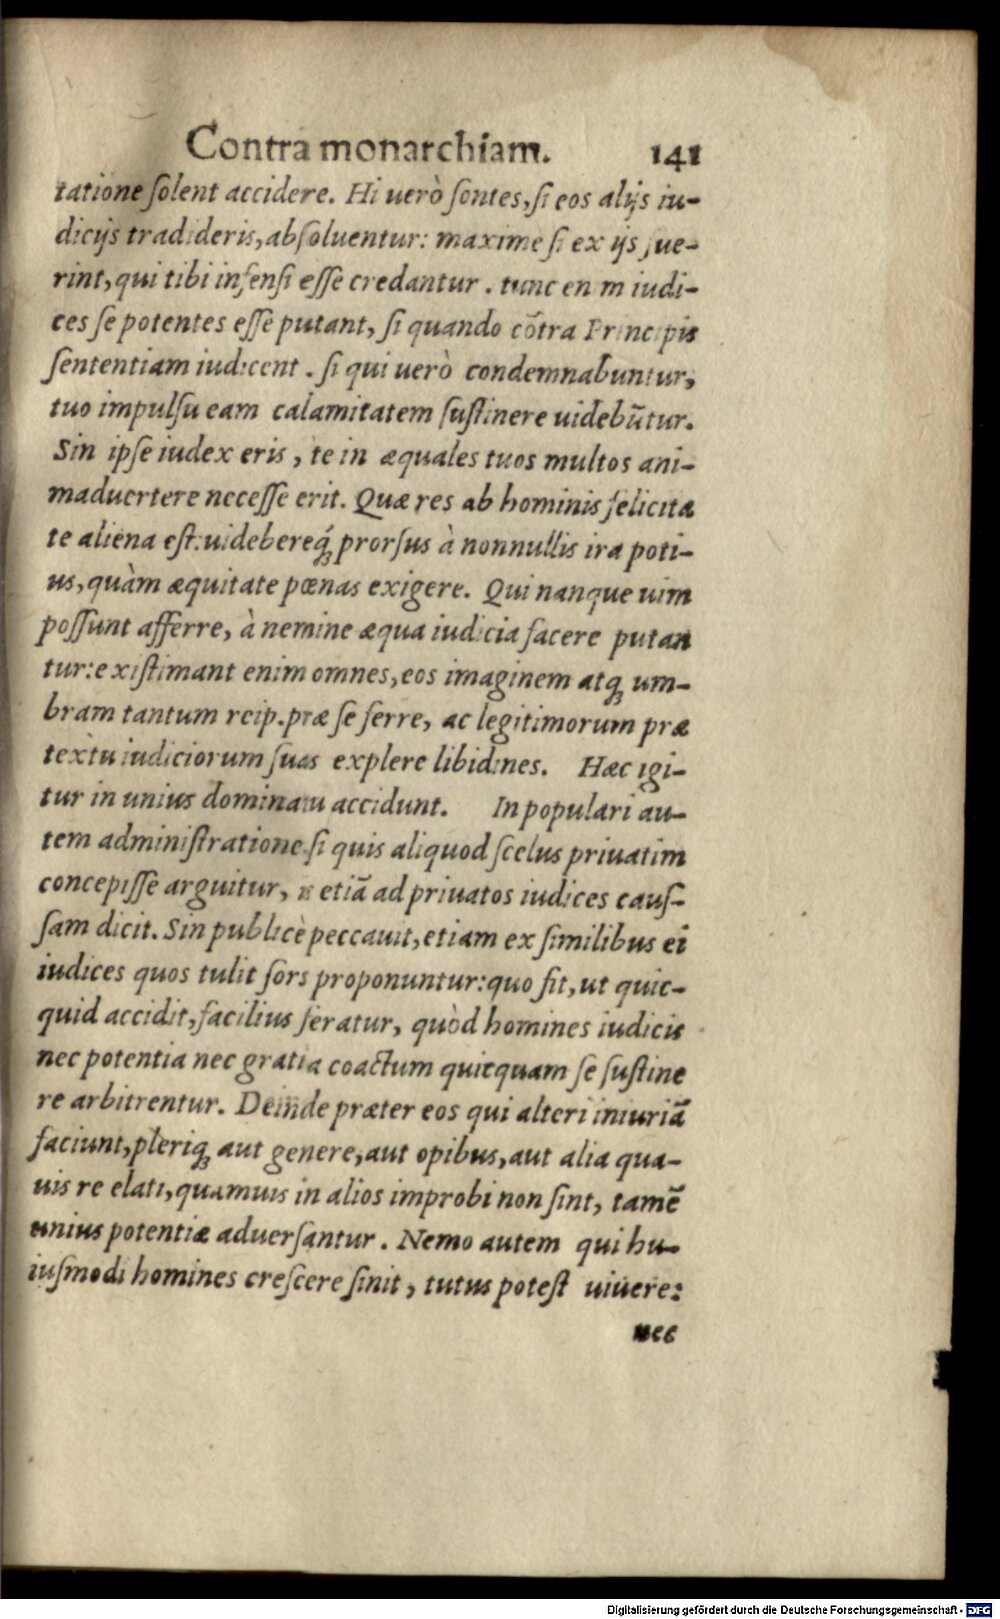 Contra monarchiam. 141
tatione ſolent accidere. Hi uerò ſontes, ſi eos alijs iu-
dicijs tradideris, abſoluentur: maxime ſi ex ijs fue-
rint, qui tibi infenſi eſſe credantur. tunc enim iudi-
ces ſe potentes eſſe putant, ſi quando cõtra Principis
ſententiam iudicent. ſi qui uerò condemnabuntur,
tuo impulſu eam calamitatem ſuſtinere uidebũtur.
Sin ipſe iudex eris, te in æquales tuos multos ani-
maduertere neceſſe erit. Quæ res ab hominis felicita
te aliena eſt: uidebereq́; prorſus à nonnullis ira poti-
us, quàm æquitate pœnas exigere. Qui nanque uim
poſſunt afferre, à nemine æqua iudicia facere putan
tur: exiſtimant enim omnes, eos imaginem atq; um-
bram tantum reip. præ ſe ferre, ac legitimorum præ
textu iudiciorum ſuas explere libidines. Hæc igi-
tur in unius dominatu accidunt. In populari au-
tem adminiſtratione ſi quis aliquod ſcelus priuatim
concepiſſe arguitur, is etiã ad priuatos iudices cauſ-
ſam dicit. Sin publicè peccauit, etiam ex ſimilibus ei
iudices quos tulit ſors proponuntur: quo fit, ut quic-
quid accidit, facilius feratur, quòd homines iudicis
nec potentia nec gratia coactum quicquam ſe ſuſtine
re arbitrentur. Deinde præter eos qui alteri iniuriã
faciunt, pleriq; aut genere, aut opibus, aut alia qua-
uis re elati, quamuis in alios improbi non ſint, tamẽ
unius potentiæ aduerſantur. Nemo autem qui hu-
iuſmodi homines creſcere ſinit, tutus poteſt uiuere:
nec
Digitalisierung gefördert durch die Deutsche Forschungsgemeinschaft - DFG